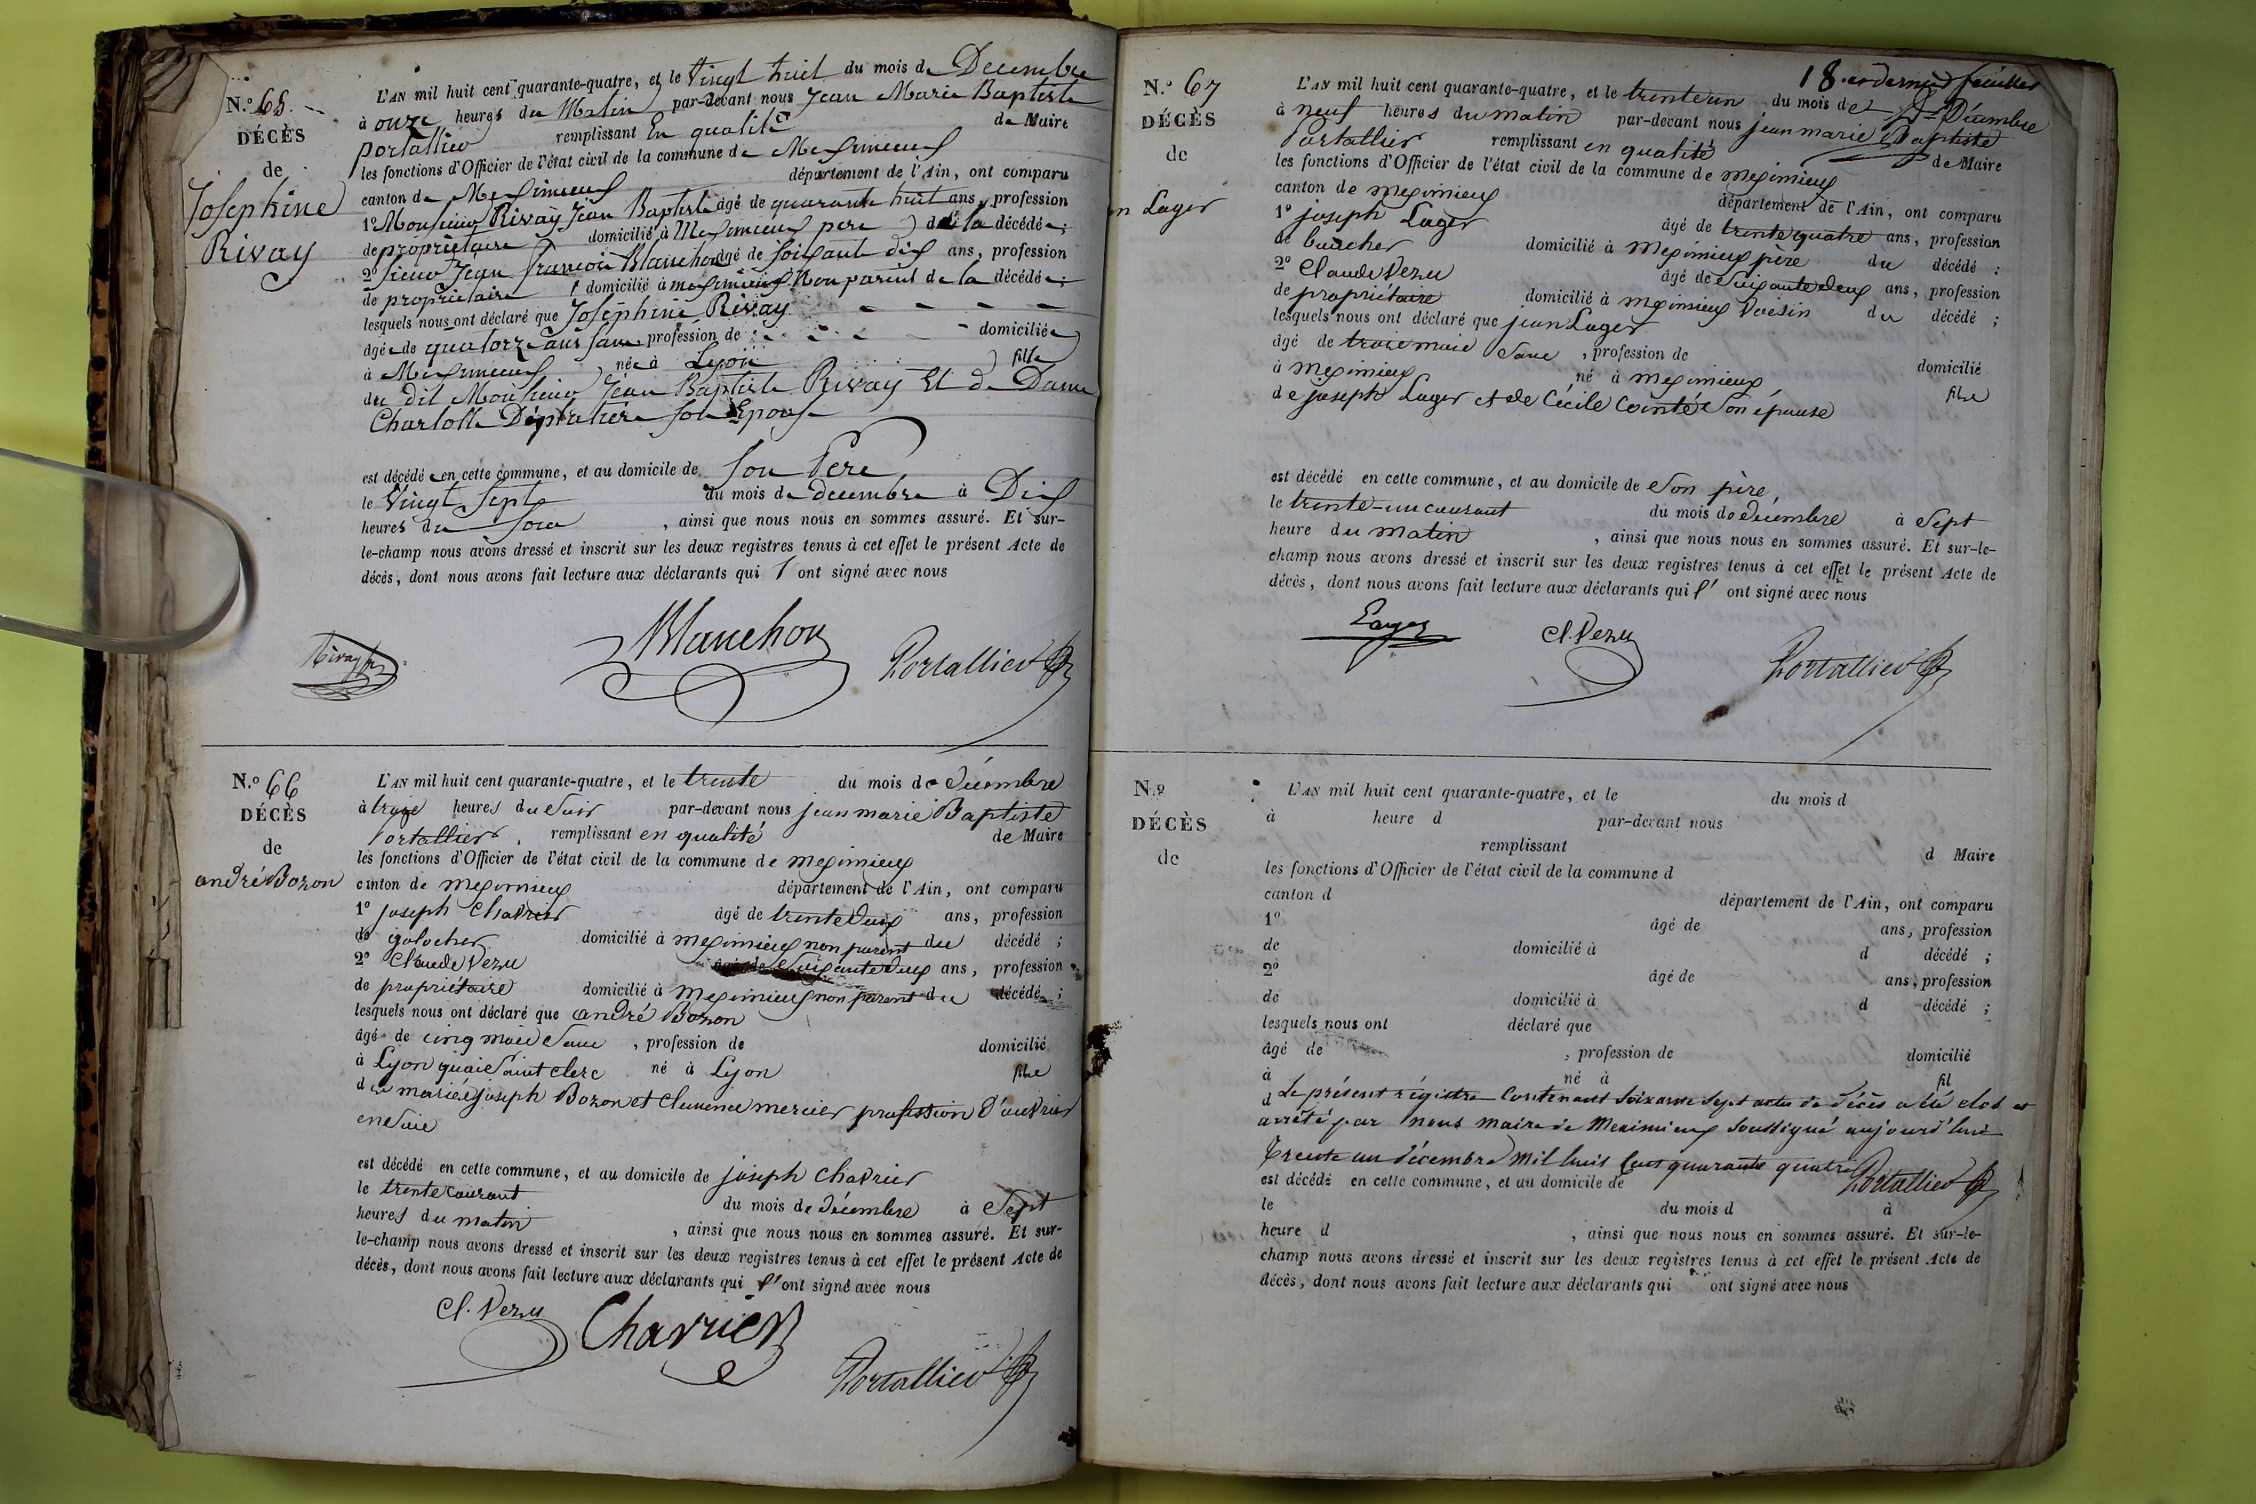 N.º 65.
DÉCÈS
de
Josephine
Rivay
L'AN mil huit cent quarante-quatre, et le Vingt huit du mois de Decembre
à onze heures du Matin par-devant nous Jean Marie Baptiste
portallier remplissant En qualité de Maire
les fonctions d'Officier de l'état civil de la commune de Meximieux
canton de Meximieux département de l'Ain, ont comparu
1º Monsieur Rivay Jean Baptiste âgé de quarante huit ans, profession
de propriétaire domicilié à Meximieux pere de la décédée;
2º sieur Jean françois Blanchon âgé de soixante dix ans, profession
de propriétaire domicilié à meximieux Non parent de la décédée;
lesquels nous ont déclaré que Joséphine Rivay
âgée de quatorze ans sans profession de domiciliée
à Meximieux née à Lyon fille
du dit Monsieur Jean Baptiste Rivay Et de Dame
Charlotte son Epouse
est décédée en cette commune, et au domicile de son Pere
le Vingt Sept du mois de decembre à Dix
heures du soir, ainsi que nous nous en sommes assuré. Et sur-
le-champ nous avons dressé et inscrit sur les deux registres tenus à cet effet le présent Acte de
décès, dont nous avons fait lecture aux déclarants qui l'ont signé avec nous
Rivay Blanchon Portallier
N.º 66
DÉCÈS
de
andré Bozon
L'AN mil huit cent quarante-quatre, et le trente du mois de Décembre
à troize heures du Soir par-devant nous jean marie Baptiste
Portallier, remplissant en qualité de Maire
les fonctions d'Officier de l'état civil de la commune de meximieux
canton de meximieux département de l'Ain, ont comparu
1º joseph Chavrier âgé de trente deux ans, profession
de galocher domicilié à meximieux non parent du décédé;
2º Claude Vezu âgé de Soixante deux ans, profession
de propriétaire domicilié à meximieux non parent du décédé;
lesquels nous ont déclaré que andré Bozon
âgé de cinq mois Sans, profession de domicilié
à Lyon quaie Saint clerc né à Lyon fils
des mariés joseph Bozon et Clemence mercier profession d'ouvrier
en Soie
est décédé en cette commune, et au domicile de joseph Chavrier
le trente courant du mois de Décembre à Sept
heures du matin, ainsi que nous nous en sommes assuré. Et sur-
le-champ nous avons dressé et inscrit sur les deux registres tenus à cet effet le présent Acte de
décès, dont nous avons fait lecture aux déclarants qui l'ont signé avec nous
Cl. Vezu Chavrier Portallier
18. et dernier feuillet
N.º 67
DÉCÈS
de
n Lager
L'AN mil huit cent quarante-quatre, et le trente un du mois de Décembre
à neuf heures du matin par-devant nous jean marie Baptiste
Portallier remplissant en qualité de Maire
les fonctions d'Officier de l'état civil de la commune de meximieux
canton de meximieux département de l'Ain, ont comparu
1º joseph Lager âgé de trente quatre ans, profession
de boucher domicilié à meximieux père du décédé;
2º Claude Vezu âgé de Soixante deux ans, profession
de propriétaire domicilié à meximieux Voisin du décédé;
lesquels nous ont déclaré que jean Lager
âgé de trois mois Sans, profession de domicilié
à meximieux né à meximieux fils
de joseph Lager et de Cécile Cointé Son épouse
est décédé en cette commune, et au domicile de Son père
le trente-un courant du mois de décembre à Sept
heure du matin, ainsi que nous nous en sommes assuré. Et sur-le-
champ nous avons dressé et inscrit sur les deux registres tenus à cet effet le présent Acte de
décès, dont nous avons fait lecture aux déclarants qui l'ont signé avec nous
Lager Cl. Vezu Portallier
N.º
DÉCÈS
de
L'AN mil huit cent quarante-quatre, et le du mois d
à heure d par-devant nous
remplissant d Maire
les fonctions d'Officier de l'état civil de la commune d
canton d département de l'Ain, ont comparu
1º âgé de ans, profession
de domicilié à d décédé;
2º âgé de ans, profession
de domicilié à d décédé;
lesquels nous ont déclaré que
âgé de, profession de domicilié
à né à fil
d Le présent régistre Contenant Soixante Sept actes de décès a été clos et
arrêté par nous Maire de Meximieux Soussigné aujourd'hui
Trente un décembre Mil huit Cent quarante quatre Portallier
est décédé en cette commune, et au domicile de
le du mois d à
heure d, ainsi que nous nous en sommes assuré. Et sur-le-
champ nous avons dressé et inscrit sur les deux registres tenus à cet effet le présent Acte de
décès, dont nous avons fait lecture aux déclarants qui ont signé avec nous